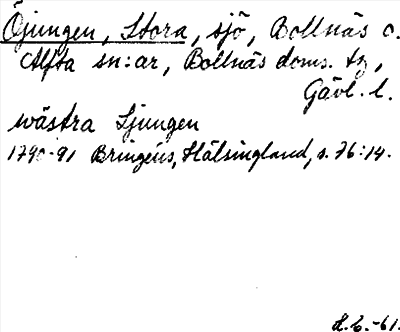 Öjungen, Stora, sjö, Bollnäs o.
Alfta sn:ar, Bollnäs doms. tg,
Gävl. l.
wästra Ljungen
1790-91 Bringéus, Hälsingland, s. 76:14.
H.E.-61.